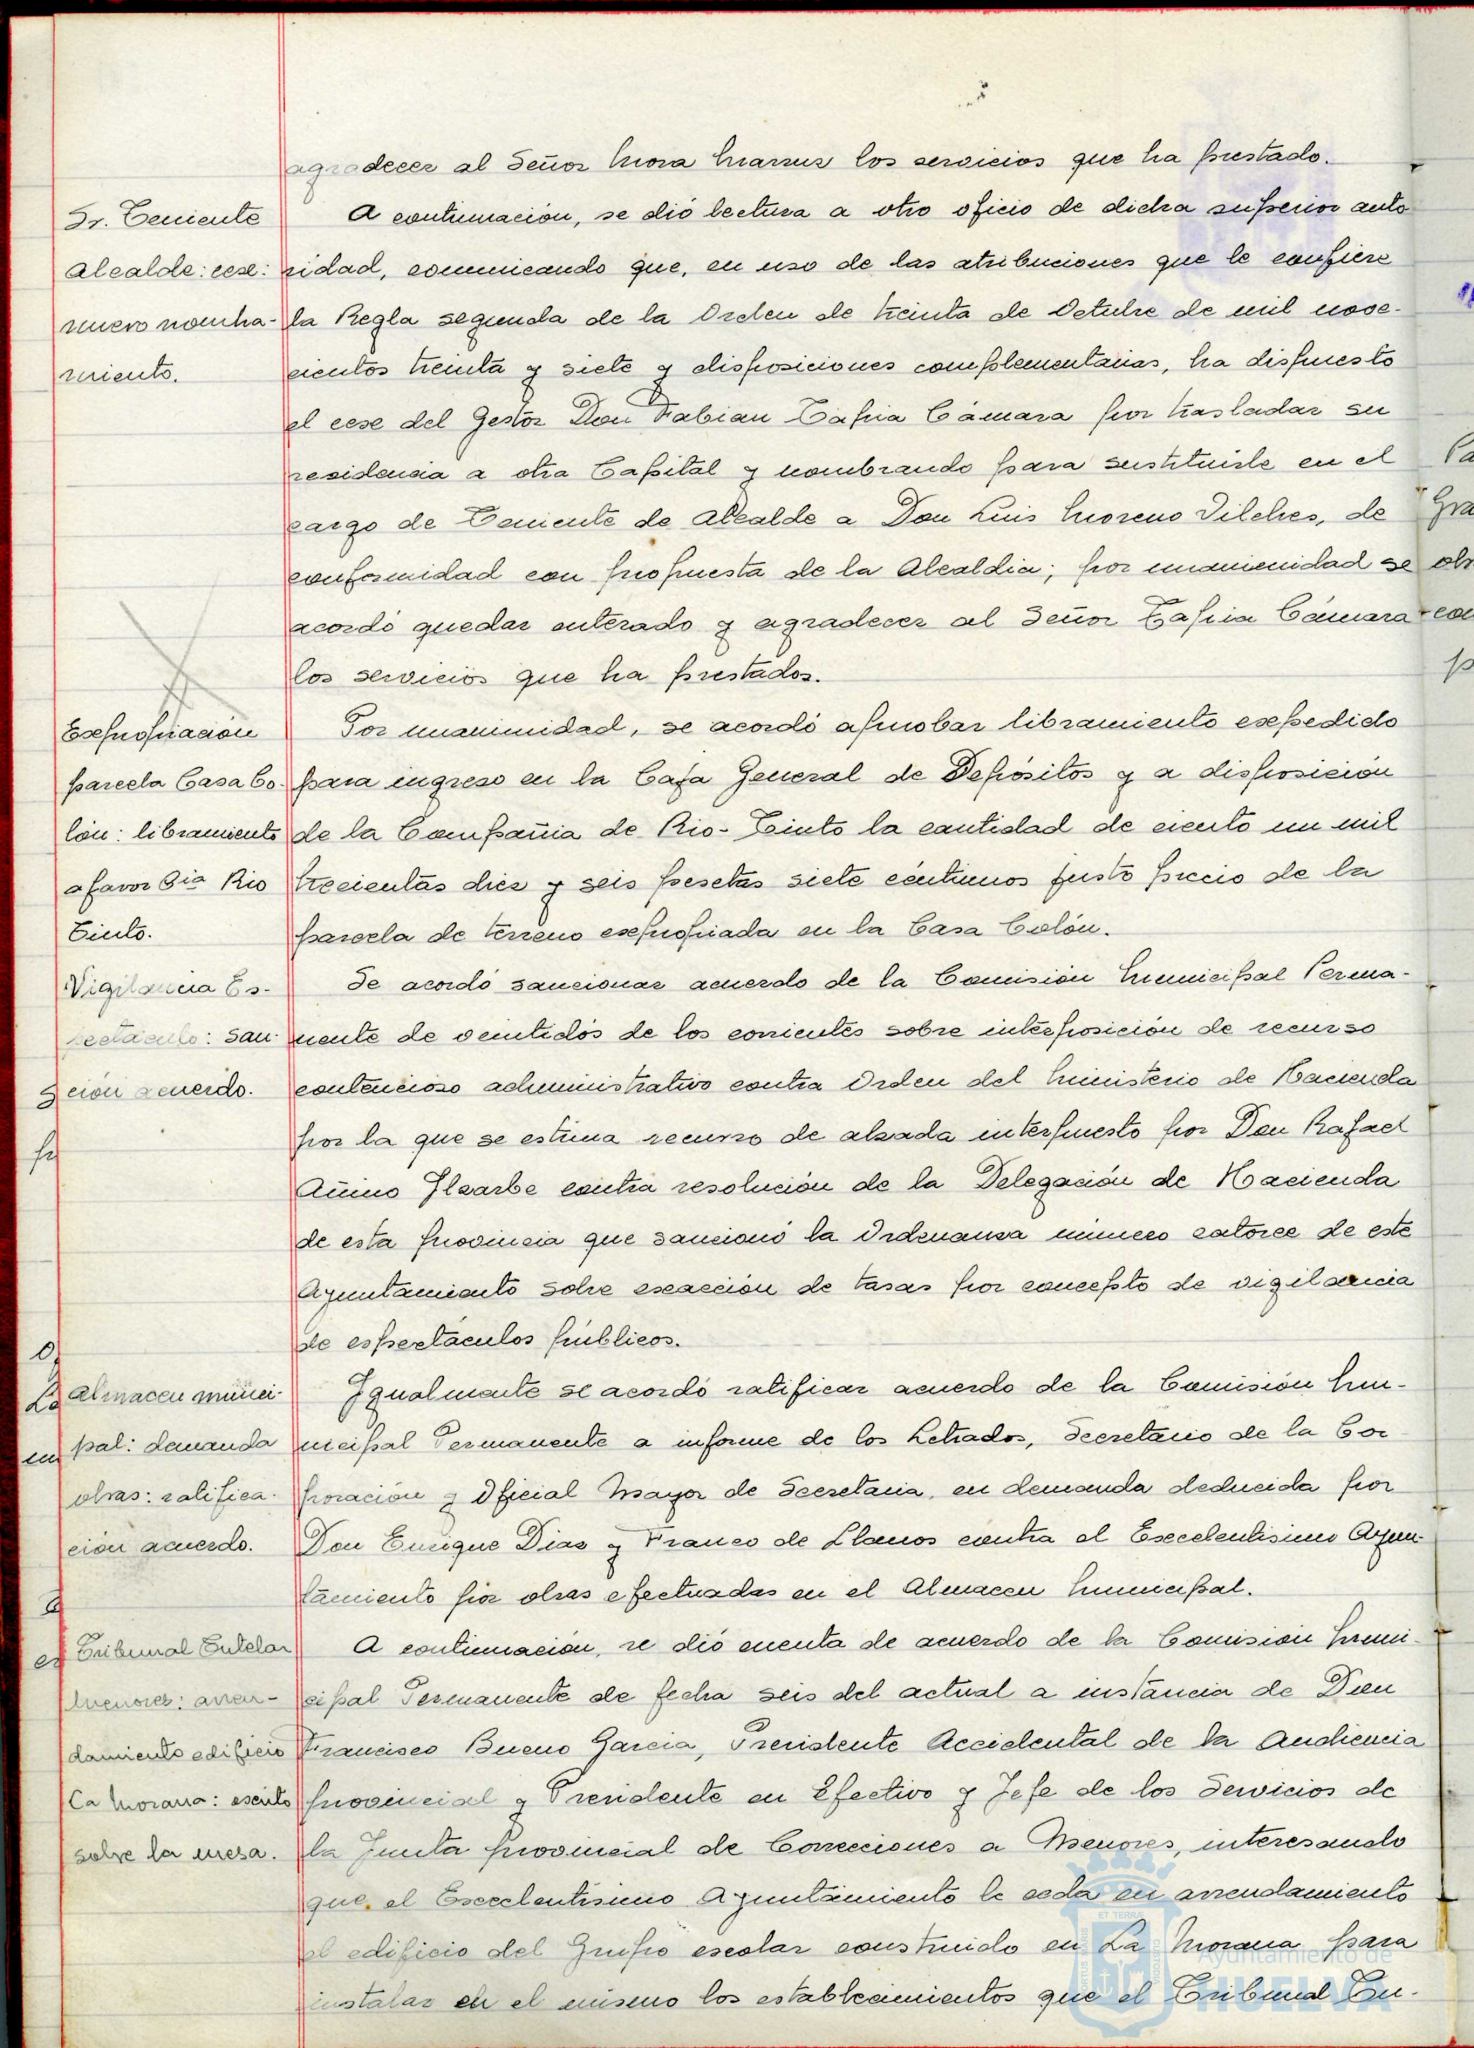 agradecer al Señor Mora los servicios que ha prestado.
Sr. Teniente
Alcalde: cese:
nuevo nombra-
miento.
A continuación, se dió lectura a otro oficio de dicha superior auto
ridad, comunicando que, en uso de las atribuciones que le confiere
la Regla segunda de la Orden de treinta de Octubre de mil nove-
cientos treinta y siete y disposiciones complementarias, ha dispuesto
el cese del Gestor Don Fabian Tapia Cámara por trasladar su
residencia a otra Capital y nombrando para sustituirle en el
cargo de Teniente de Alcalde a Don Luis Moreno Vilches, de
conformidad con propuesta de la Alcaldia; por unanimidad se
acordó quedar enterado y agradecer al Señor Tapia Cámara
los servicios que ha prestados.
Exepropiación
parcela Casa Co-
lón: libramiento
a favor Cia Rio
Tinto.
Por unanimidad, se acordó aprobar libramiento exepedido
para ingreso en la Caja General de Depósitos y a disposición
de la Compañia de Rio-Tinto la cantidad de ciento un mil
trecientas diez y seis pesetas siete céntimos justo precio de la
parcela de terreno exepropiada en la Casa Colón.
Vigilancia Es-
pectáculo: san-
ción acuerdo.
Se acordó sancionar acuerdo de la Comisión Municipal Perma-
nente de veintidós de los corrientes sobre interposición de recurso
contencioso administrativo contra Orden del Ministerio de Hacienda
por la que se estima recurso de alzada interpuesto por Don Rafael
Añino Ilzarbe contra resolución de la Delegación de Hacienda
de esta provincia que sancionó la Ordenanza número catorce de este
Ayuntamiento sobre exeacción de tasas por concepto de vigilancia
de espectáculos públicos.
Almacen munici-
pal: demanda
obras: ratifica-
ción acuerdo.
Igualmente se acordó ratificar acuerdo de la Comisión Mu-
nicipal Permanente a informe de los Letrados, Secretario de la Cor
poración y Oficial Mayor de Secretaria, en demanda deducida por
Don Enrique Diaz y Franco de Llanos contra el Execelentisimo Ayun-
tamiento por obras efectuadas en el Almacen Municipal.
Tribunal Tutelar
Menores: arren-
damiento edificio
La Morana: escrito
sobre la mesa.
A continuación, se dió cuenta de acuerdo de la Comisión Muni-
cipal Permanente de fecha seis del actual a instancia de Don
Francisco Bueno Garcia, Presidente Accidental de la Audiencia
provincial y Presidente en Efectivo y Jefe de los Servicios de
la Junta provincial de Correcciones a Menores, interesando
que el Execelentisimo Ayuntamiento le ceda en arrendamiento
el edificio del Grupo escolar construido en La Morana para
instalar en el mismo los establecimientos que el Tribunal Tu-
Ayuntamiento de
HUELVA